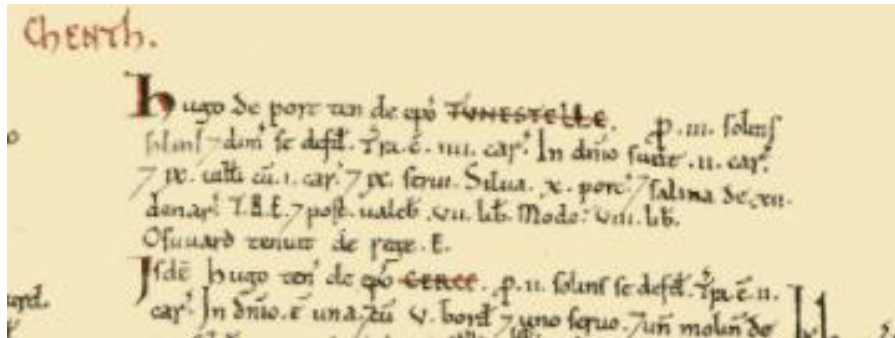 Chenth.
Hugo de port ten̄ de ep̄o TVNESTELLE. p. iii. solins
solins ⁊ dim̄ se defd̄. Tr̄a. ē. iiii. car̄. In dn̄io sunt. ii. car̄.
⁊ ix. uilli cū. i. car̄. ⁊ ix. serui. Silua. x. porc̄. ⁊ salina de. xii.
denar̄. T.R.E. ⁊ post̄ ualeb̄. vii. lib̄. Modo: viii. lib̄.
Osuuard tenuit de rege. E.
Isdē hugo ten̄ de ep̄o CERCE. p. ii. solins se defd̄. Tr̄a. ē. ii.
car̄. In dn̄io. ē una. ⁊ cū v. bord̄ ⁊ uno seruo. ⁊ un̄ molin̄ de